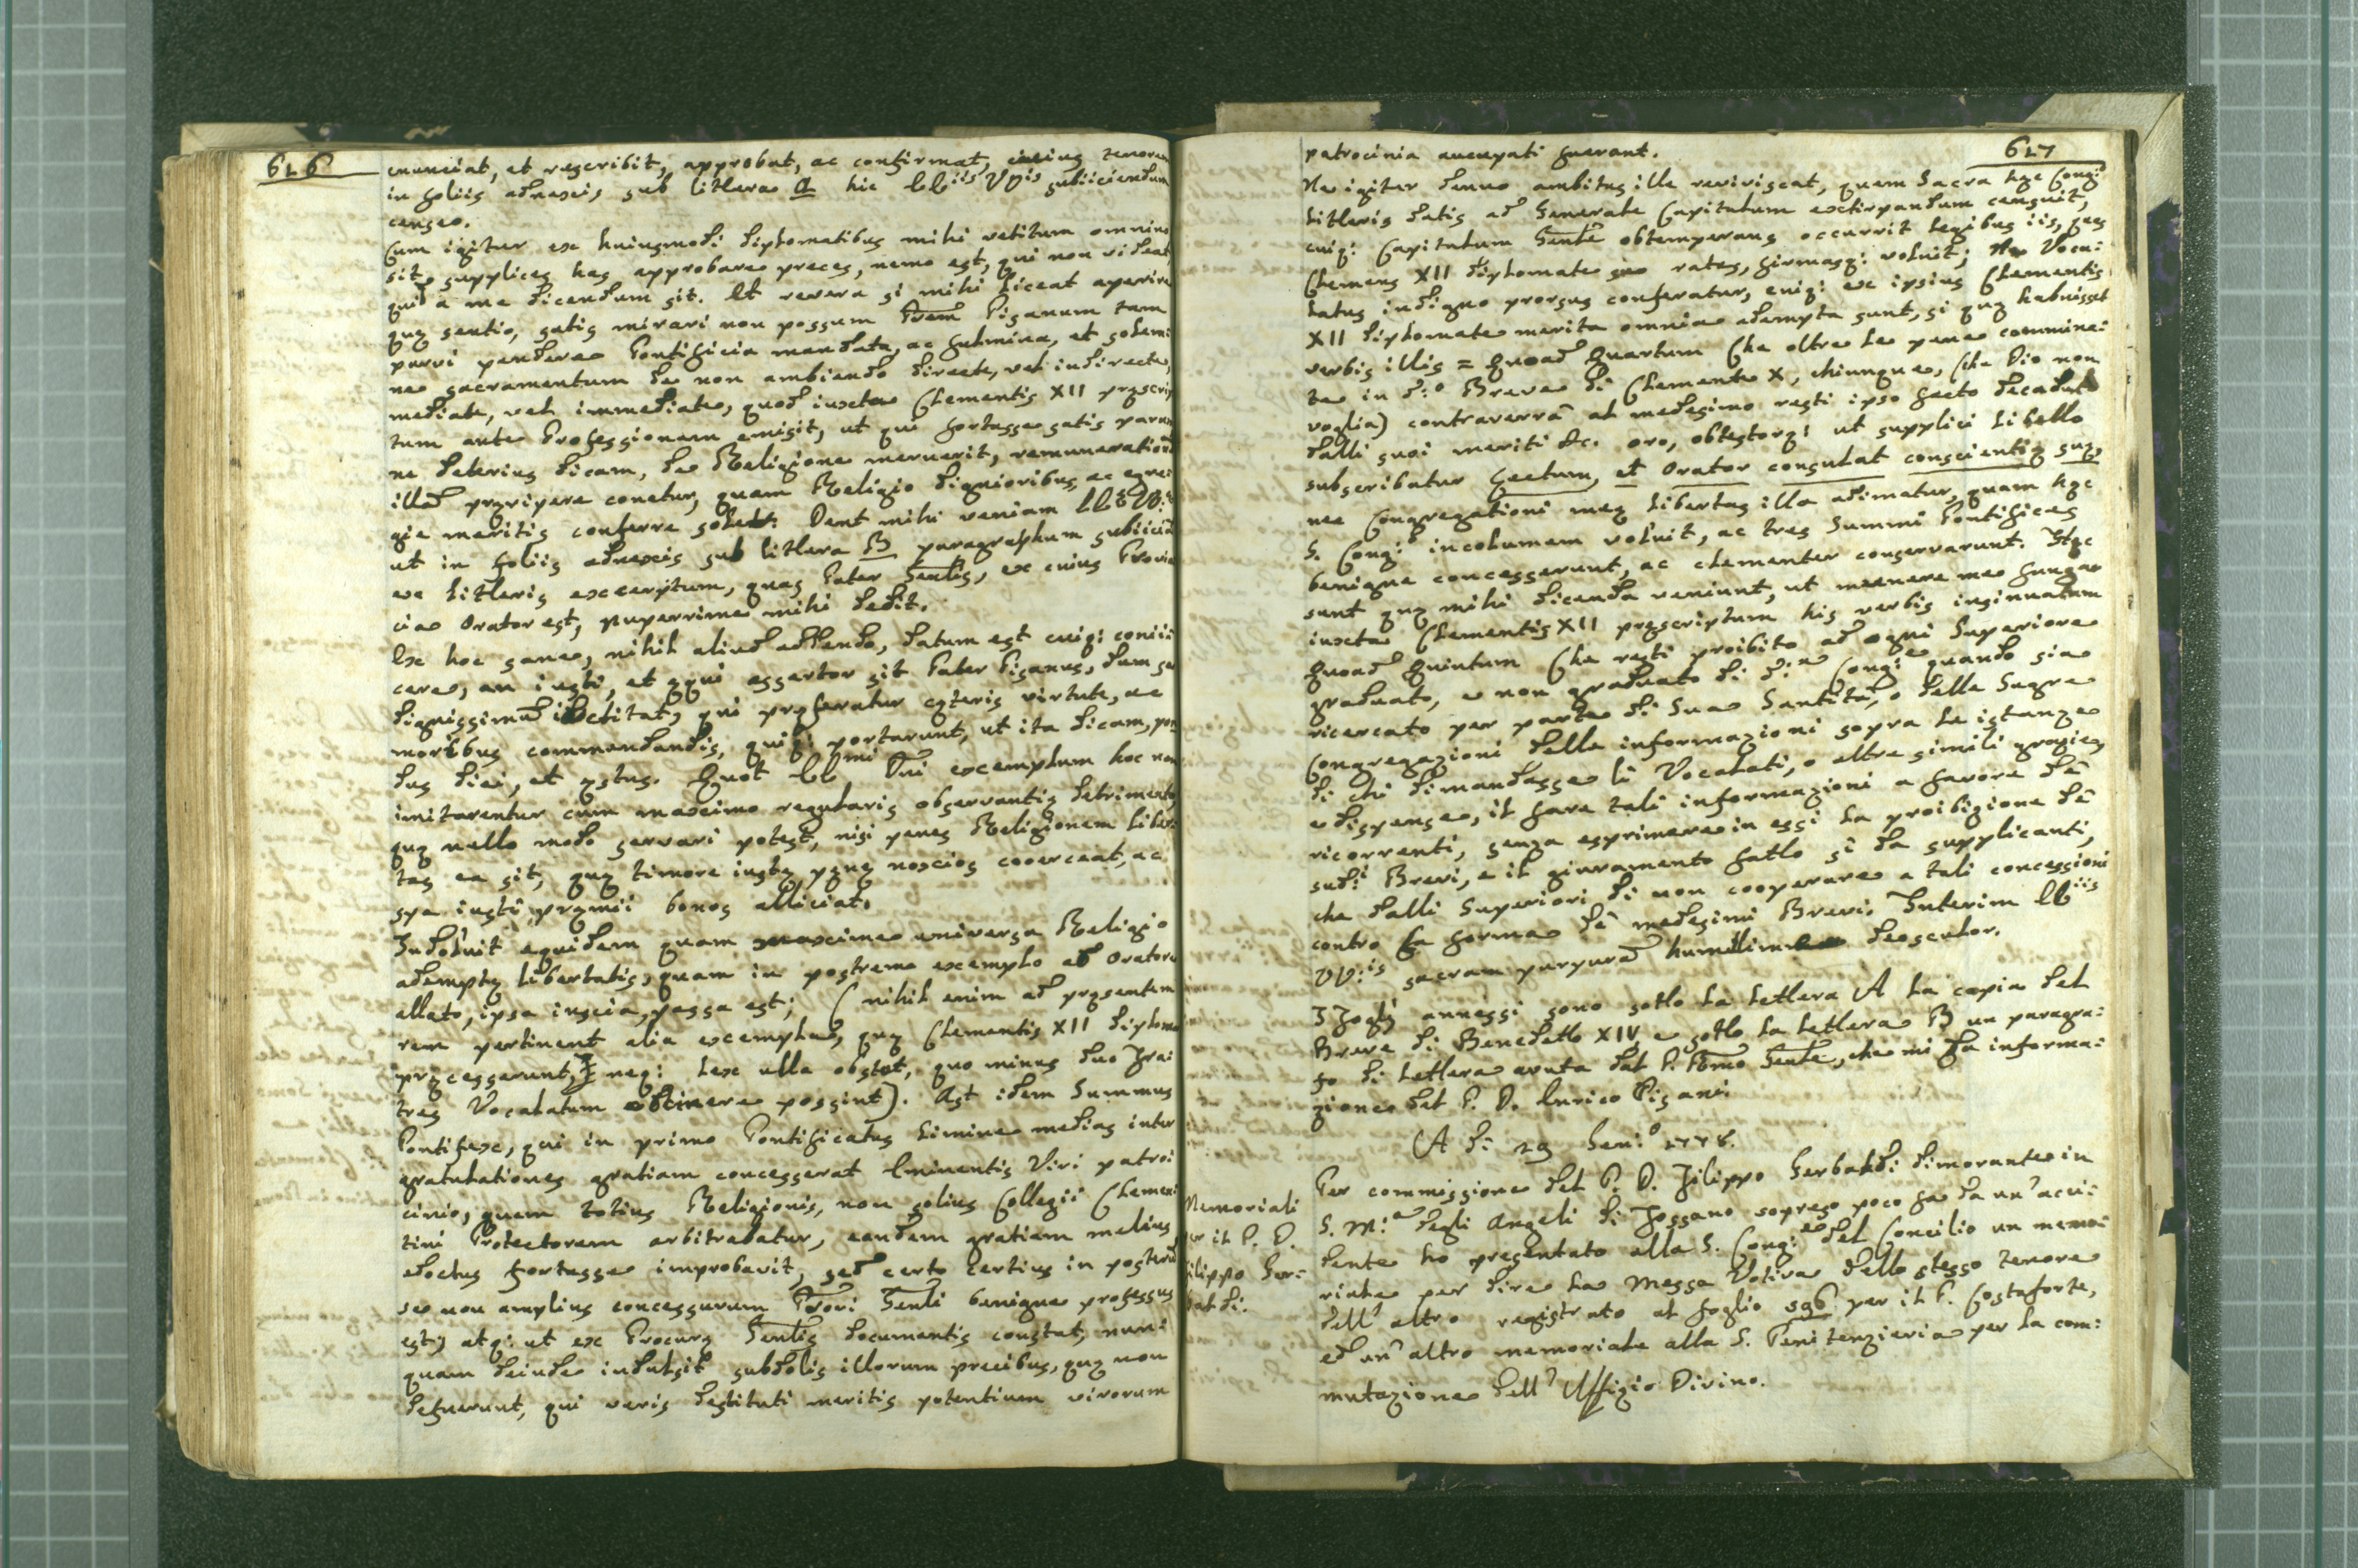 626
enunciat, et rescribit, approbat, ac confirmat, cuius tenorem
in foliis adnexis sub littera A hic EE.iis VV.is subiiciendum
censeo.
Cum igitur ex huiusmodi diplomatibus mihi vetitum omnino
sit supplices has approbare preces, nemo est, qui non videat
quid a me dicendum sit. Et revera si mihi liceat aperire
quę sentio, satis mirari non possum Prem Pisanum tam
parvi pendere Pontificia mandata, ac fulmina, et solemi
ne sacramentum de non ambiendo directe, vel indirecte,
mediate, vel immediate, quod iuxta Clementis XII pręscrip
tum ante Professionem emisit, ut qui fortasse satis parum
ne deterius dicam, de Religione meruerit, remuneration
illud pręripere conetur, quam Religio dignioribus, ac egre:
gie meritis conferre solet: Dent mihi veniam
ut in foliis adnexis sub littera B paragraphum subiiciā
ex litteris excerptum, quas Pater Gentis, ex cuius Provin
cia Orator est, nuperrime mihi dedit.
Ex hoc sane, nihil aliud addendo, datum est cuiq: coniii
cere, an iusti, et ęqui assertor sit Pater Pisanus, dum se
dignissimū dictitat, qui pręferatur cęteris virtute, ac
moribus commendandis, quiq: portarunt, ut ita dicam, pon
dus diei, et ęstus. Quot EE.mi Dni exemplum hoc non
imitarentur cum maximo regularis observantię detrimento
quę nullo modo servari potest, nisi penes Religionem liber:
tas ea sit, quę timore iustę pęnę noxios coerceat, ac
spe iusti pręmii bonos alliciat.
Indoluit equidem quam maxime universa Religio
ademptę libertatis, quam in postremo exemplo ab Oratore
allato, ipsa inscia, passa est; (nihil enim ad pręsentem
rem pertinent alia exempla, quę Clementis XII diploma
pręcesserunt, neq: lex ulla obstat, quo minus duo Fra:
tres Vocalatum obtinere possint). Ast idem Summus
Pontifex, qui in primo Pontificatus limine medias inter
gratulationes gratiam concesserat Eminentis Viri patroi
cinio, quem totius Religionis, non solius Collegii Clemen
tini Protectorem arbitrabatur, eandem gratiam melius
edoctus fortasse improbavit, sed certo certius in posterū
se non amplius concessurum Procri Genli benigne professus
est, atq: ut ex Procurę Genlis documentis constat, nun:
quam deinde indulsit subdolis illorum precibus, quę non
defuerunt, qui veris destituti meritis potentium virorum
627
patrocinia aucupati fuerant.
Ne igitur denuo ambitus ille reviviscat, quem Sacra hęc Cong:
litteris datis ad Generale Capitulum extirpandum censuit,
cuiq: Capitulum Genle obtemperans occurrit legibus iis, quas
Clemens XII diplomate suo ratas, firmasq: voluit; Ne Voca:
latus indigno prorsus conferatur, cuiq: ex ipsius Clementis
XII diplomate merita omnia adempta sunt, si quę habuisset
verbis illis = Quoad Quartum Che oltre le pene commina:
te in d:o Breve di Clemente X, chiunque, (che Dio non
voglia) contraverrà al medesimo resti ipso facto decaduto
dalli suoi meriti &c. oro, obtestorq: ut supplici libello
subscribatur Lectum, et Orator consulat conscientię suę,
nec Congregationi meę libertas illa adimatur, quam hęc
S. Cong: incolumem voluit, ac tres Summi Pontifices
benigne concesserunt, ac clementer conservarunt. Hęc
sunt quę mihi dicenda veniunt, ut munere meo fungar
iuxta Clementis XII pręscriptum his verbis insinuatum
Quoad Quintum Che resti proibito ad ogni Superiore
graduato, e non graduato di d:a Cong:e quando sia
ricercato per parte di Sua Santità, o delle Sagre
Congregazioni delle informazioni sopra le istanze
di chi dimandasse li Vocalati, o altre simili grazie,
e dispense, il fare tali informazioni a favore dè
ricorrenti, senza esprimere in essi la proibizione dè
sud:i Brevi, e il giuramento fatto sì da supplicanti,
che dalli Superiori di non cooperare a tali concessioni
contro la forma dè medesimi Brevi. Interim EE.iis
VV:is sacram purpurā humillime deosculor.
I Foglj annessi sono sotto la lettera A la copia del
Breve di Benedetto XIV, e sotto la lettera B un paragra:
fo di lettera avuta dal P. Rmo Genle, che mi dà informa:
zione del P. D. Enrico Pisani.
A dì 29 Gen:o 1778.
Memoriali
per il P. D.
Filippo Ger:
baldi:
Per commissione del P. D. Filippo Gerbaldi dimorante in
S. M:a degli Angeli di Fossano sopreso poco fa da un' acci:
dente ho presentato alla S. Cong:e del Concilio un memo:
riale per dire la Messa Votiva dello stesso tenore
dell' altro registrato al foglio 596 per il P. Costaforte,
ed un' altro memoriale alla S. Penitenzieria per la com:
mutazione dell' Uffizio Divino.